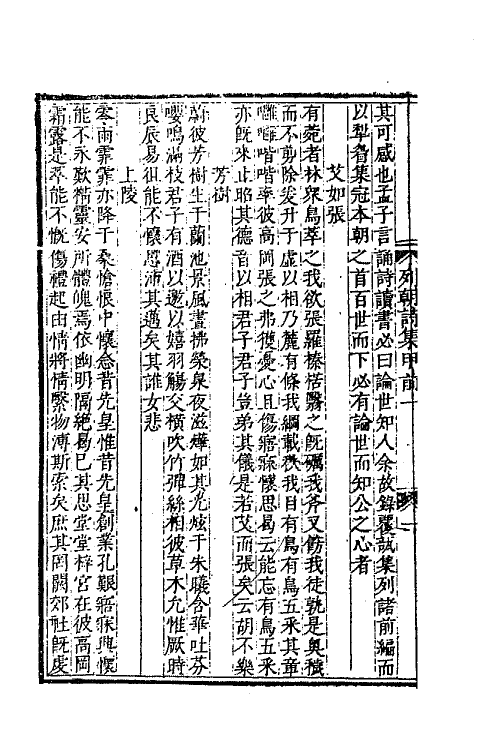 其可感也孟子言誦詩讀書必曰論世知人余故錄覆瓿集列諸前編而
以犂眉集冠本朝之首百世而下必有論世而知公之心者
艾如張
有菀者林衆鳥萃之我欲張羅榛楛翳之旣礪我斧又飭我徒孰是奧穢
而不剪除爰升于虛以相乃麓有條我綱載秩我目有鳥有鳥五采其章
嗈嗈喈喈率彼高岡張之弗獲憂心且傷寤寐懷思曷云能忘有鳥五采
亦旣來止昭其德音以相君子君子豈弟其儀是若艾而張矣云胡不樂
芳樹
蔚彼芳樹生于蘭池景風晝拂榮泉夜滋燁如其光炫于朱曦含華吐芬
嚶鳴滿枝君子有酒以邀以嬉羽觴交橫吹竹彈絲相彼草木允惟厥時
良辰易徂能不懷思沛其邁矣其誰女悲
上陵
零雨霏霏亦降于桑愴懷中懷念昔先皇惟昔先皇創業孔艱寤寐興懷
能不永歎精靈安所體魄焉依幽明隔絕曷已其思堂堂梓宮在彼高岡
霜露是萃能不慨傷禮起由情將情繄物溥斯索矣庶其罔闕郊社旣虔
列朝詩集甲前一